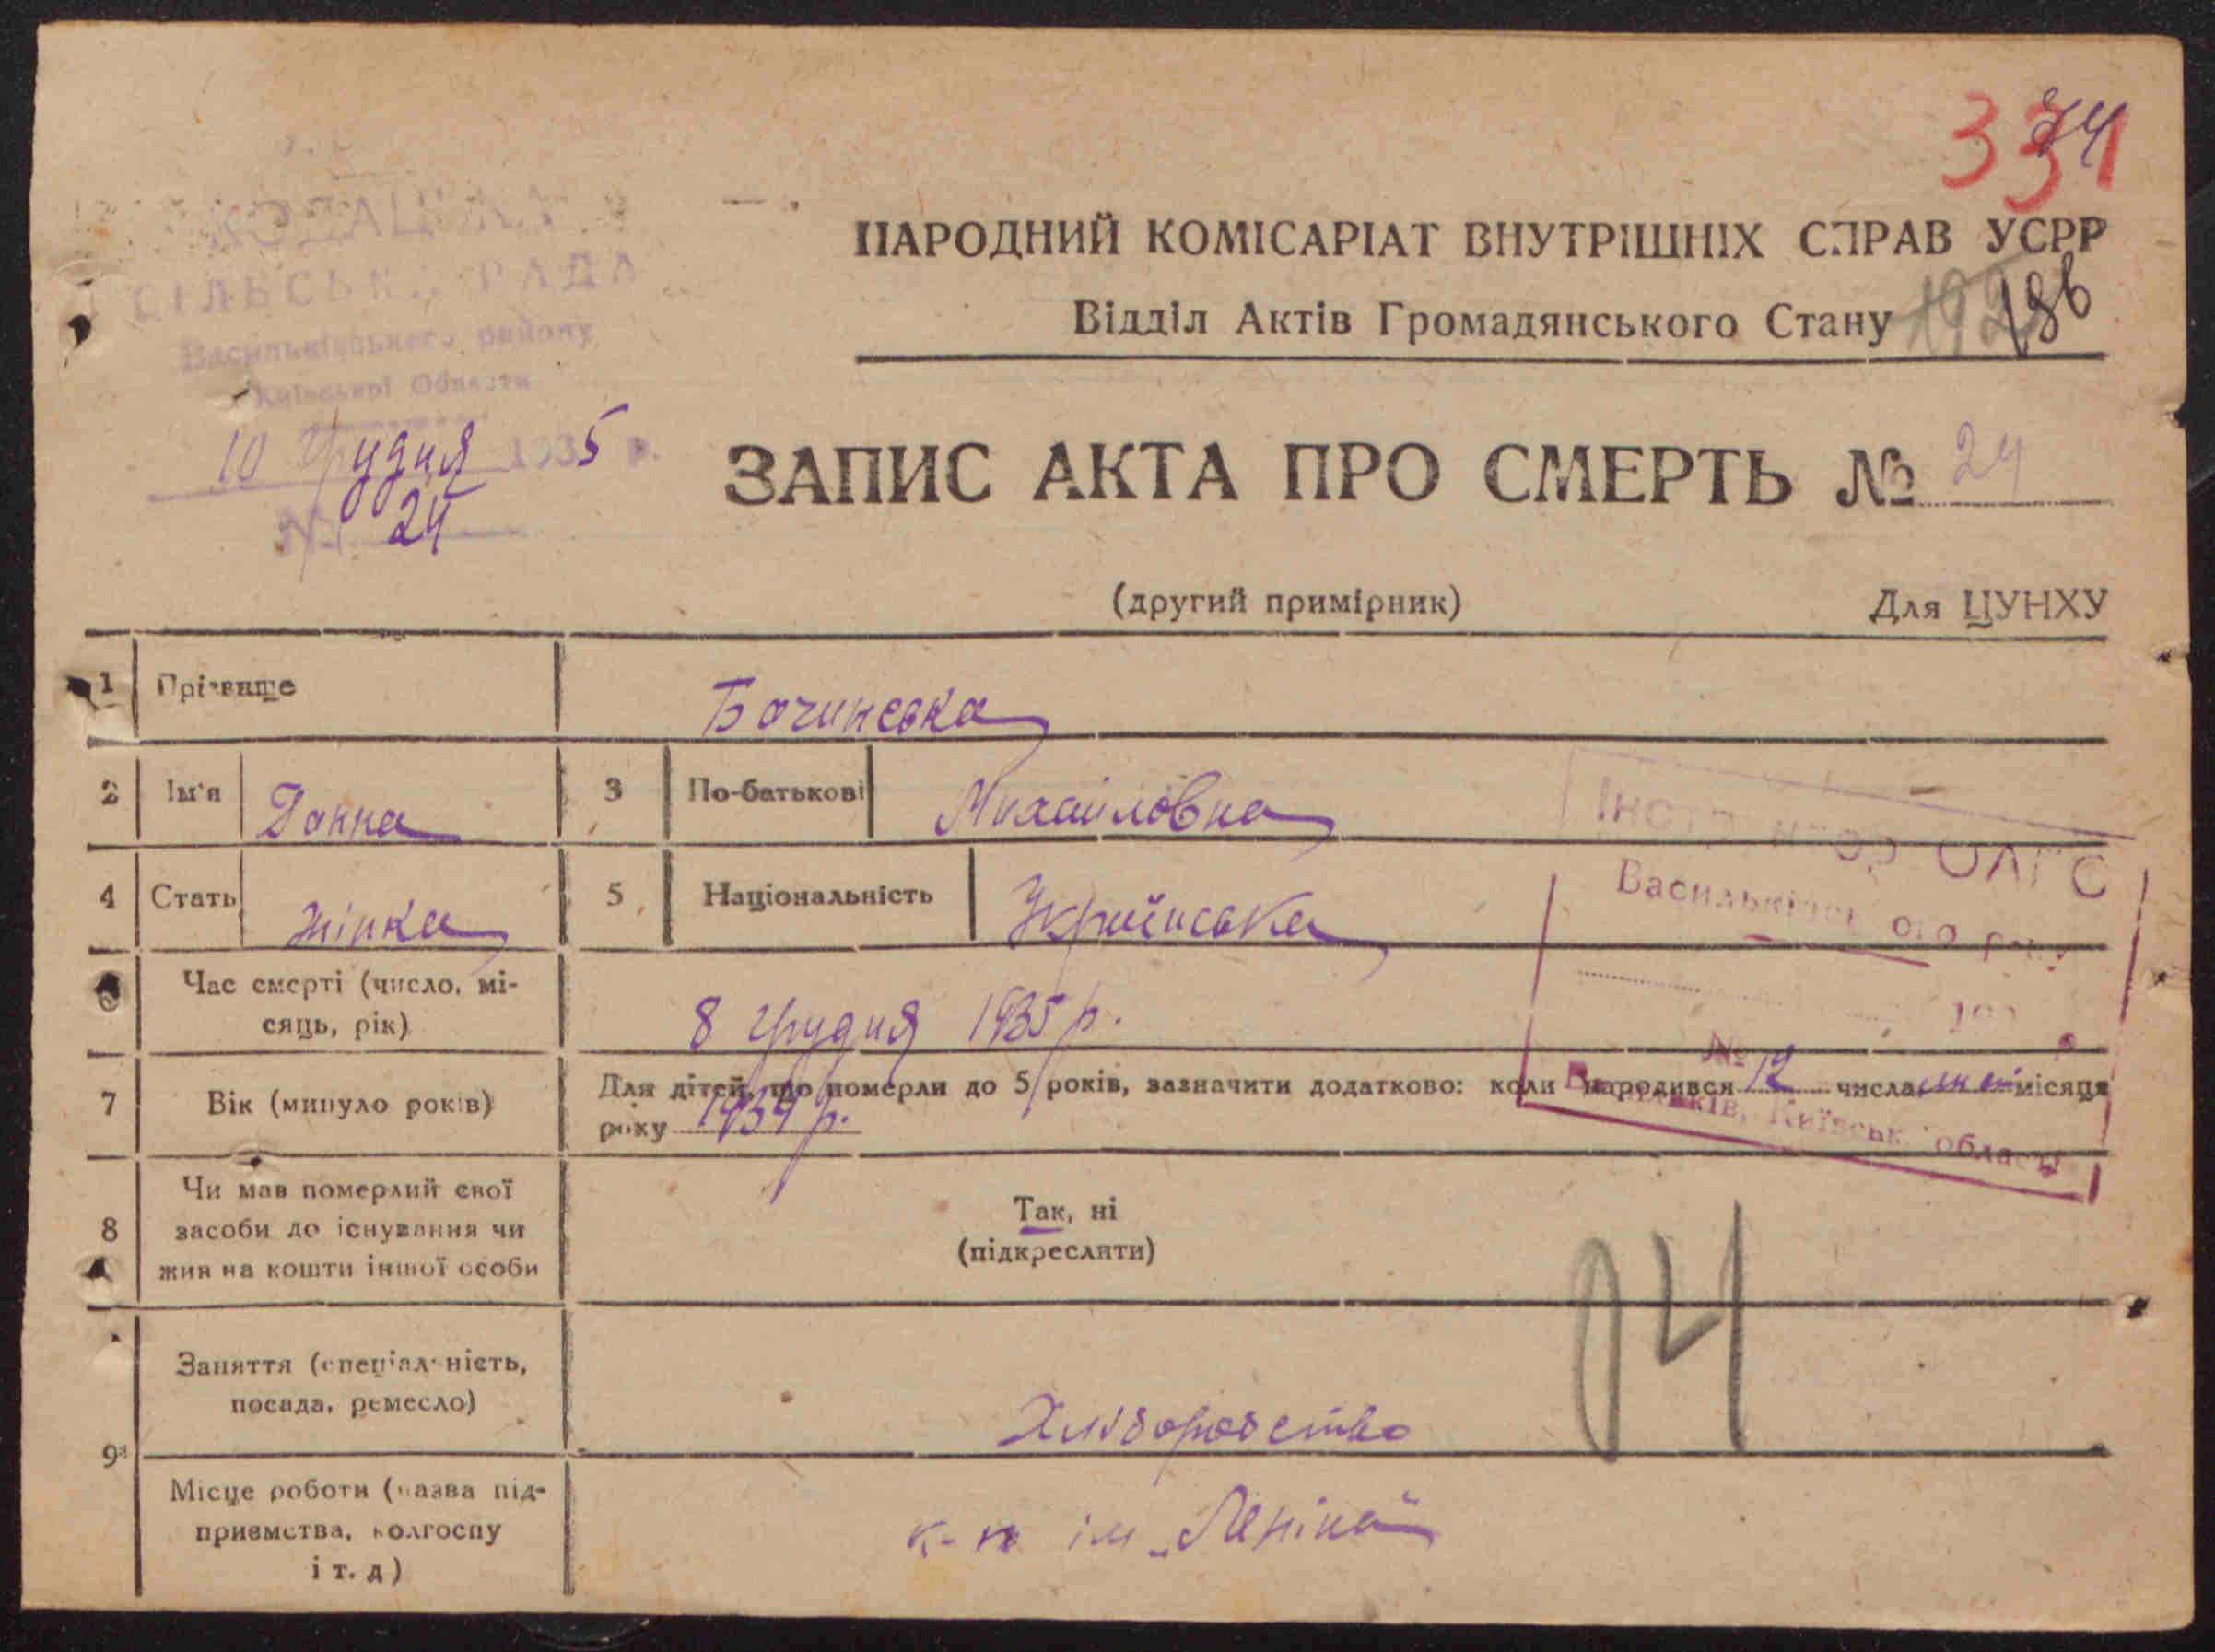 331
74
НАРОДНИЙ КОМІСАРІАТ ВНУТРІШНІХ СПРАВ УСРР
Відділ Актів Громадянського Стану
186
СІЛЬСЬКА РАДА
Васильківського району
Київської Области
10 грудня 1935 р.
№ 24
ЗАПИС АКТА ПРО СМЕРТЬ № 24
(другий примірник)
Для ЦУНХУ
1 Прізвище Бачинська
2 Ім'я Ганна 3 По-батькові Михайловна
4 Стать жінка 5 Національність Українська
Інспектор ОАГС
Васильківського р-ну
№
Васильків, Київськ. області
6 Час смерті (число, мі-
сяць, рік) 8 грудня 1935 р.
7 Вік (минуло років) Для дітей, що померли до 5 років, зазначити додатково: коли народився 12 числа місяця
року 1934 р.
8 Чи мав померлий свої
засоби до існування чи
жив на кошти іншої особи
Так, ні
(підкреслити)
9 Заняття (спеціальність,
посада, ремесло) Хліборобство
Місце роботи (назва під-
приємства, колгоспу
і т. д) к-п ім „Леніна"